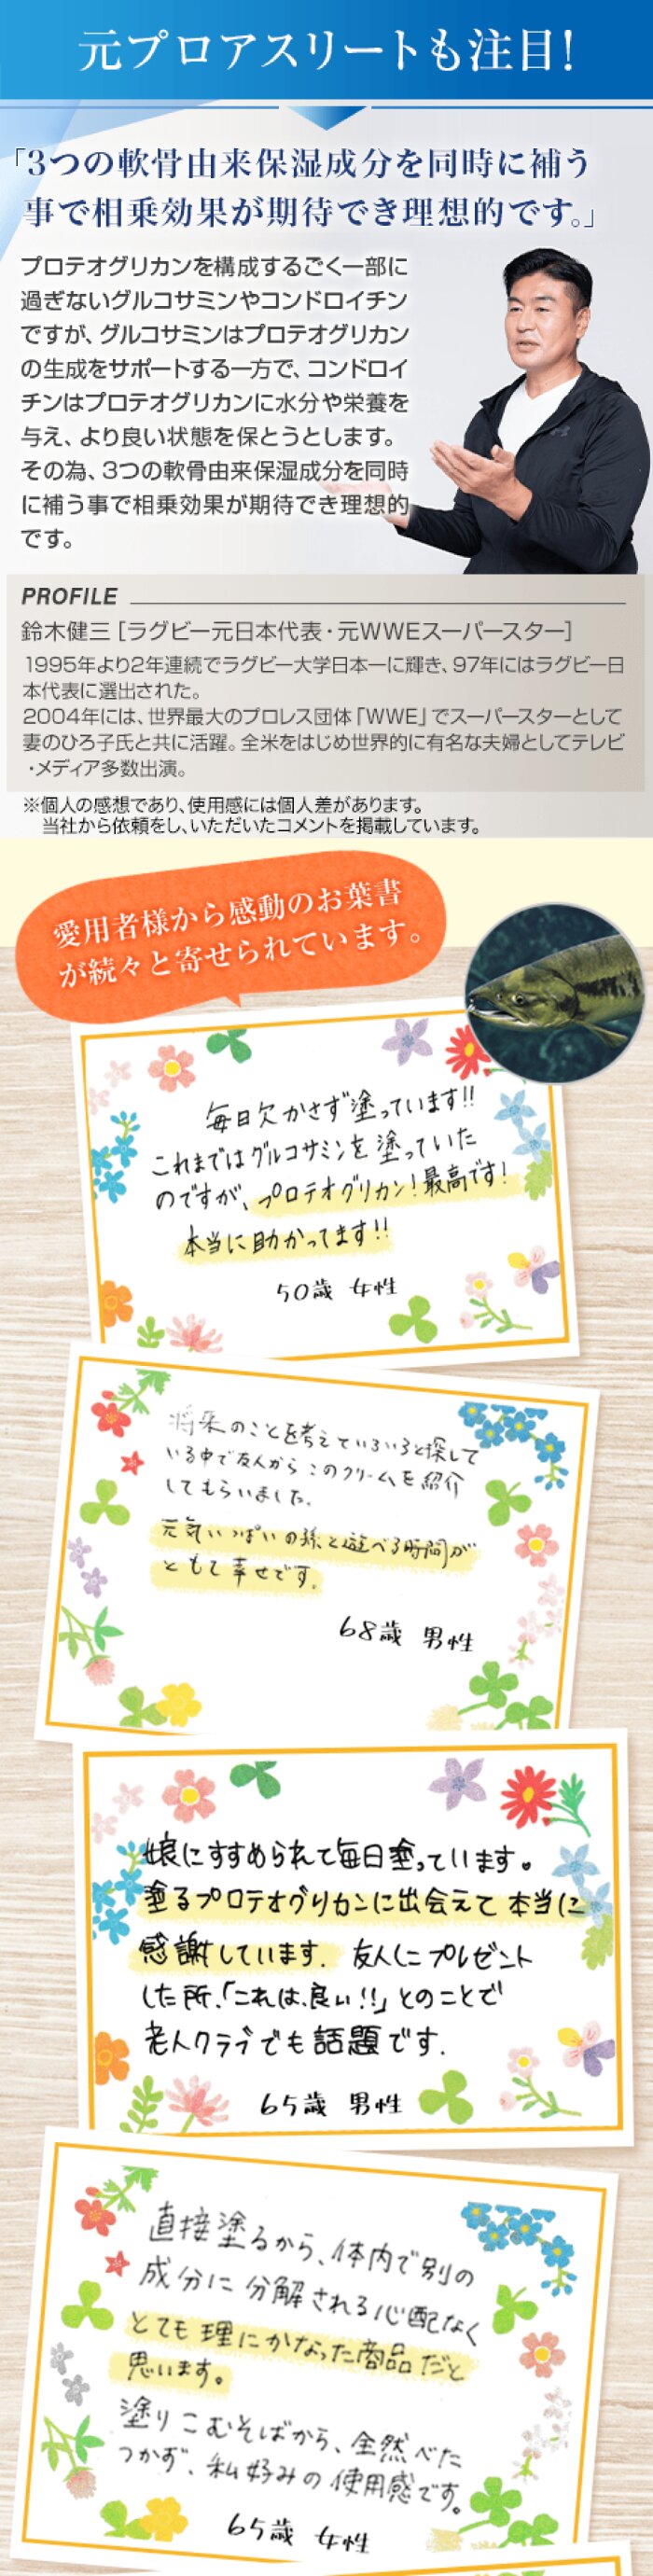 元プロアスリートも注目!
「3つの軟骨由来保湿成分を同時に補う
事で相乗効果が期待でき理想的です。」
プロテオグリカンを構成するごく一部に
過ぎないグルコサミンやコンドロイチン
ですが、グルコサミンはプロテオグリカン
の生成をサポートする一方で、コンドロイ
チンはプロテオグリカンに水分や栄養を
与え、より良い状態を保とうとします。
その為、3つの軟骨由来保湿成分を同時
に補う事で相乗効果が期待でき理想的
です。
PROFILE
鈴木健三［ラグビー元日本代表・元WWEスーパースター］
1995年より2年連続でラグビー大学日本一に輝き、97年にはラグビー日
本代表に選出された。
2004年には、世界最大のプロレス団体「WWE」でスーパースターとして
妻のひろ子氏と共に活躍。全米をはじめ世界的に有名な夫婦としてテレビ
・メディア多数出演。
※個人の感想であり、使用感には個人差があります。
当社から依頼をし、いただいたコメントを掲載しています。
愛用者様から感動のお葉書
が続々と寄せられています。
毎日欠かさず塗っています!!
これまではグルコサミンを塗っていた
のですが、プロテオグリカン!最高です!
本当に助かってます!!
50歳 女性
将来のことを考えていろいろと探して
いる中で友人からこのクリームを紹介
してもらいました。
元気いっぱいの孫と遊べる時間が
とても幸せです。
68歳 男性
娘にすすめられて毎日塗っています。
塗るプロテオグリカンに出会えて本当に
感謝しています。友人にプレゼント
した所、「これは、良い!!」とのことで
老人クラブでも話題です。
65歳 男性
直接塗るから、体内で別の
成分に分解される心配なく
とても理にかなった商品だと
思います。
塗りこむそばから、全然べた
つかず、私好みの使用感です。
65歳 女性